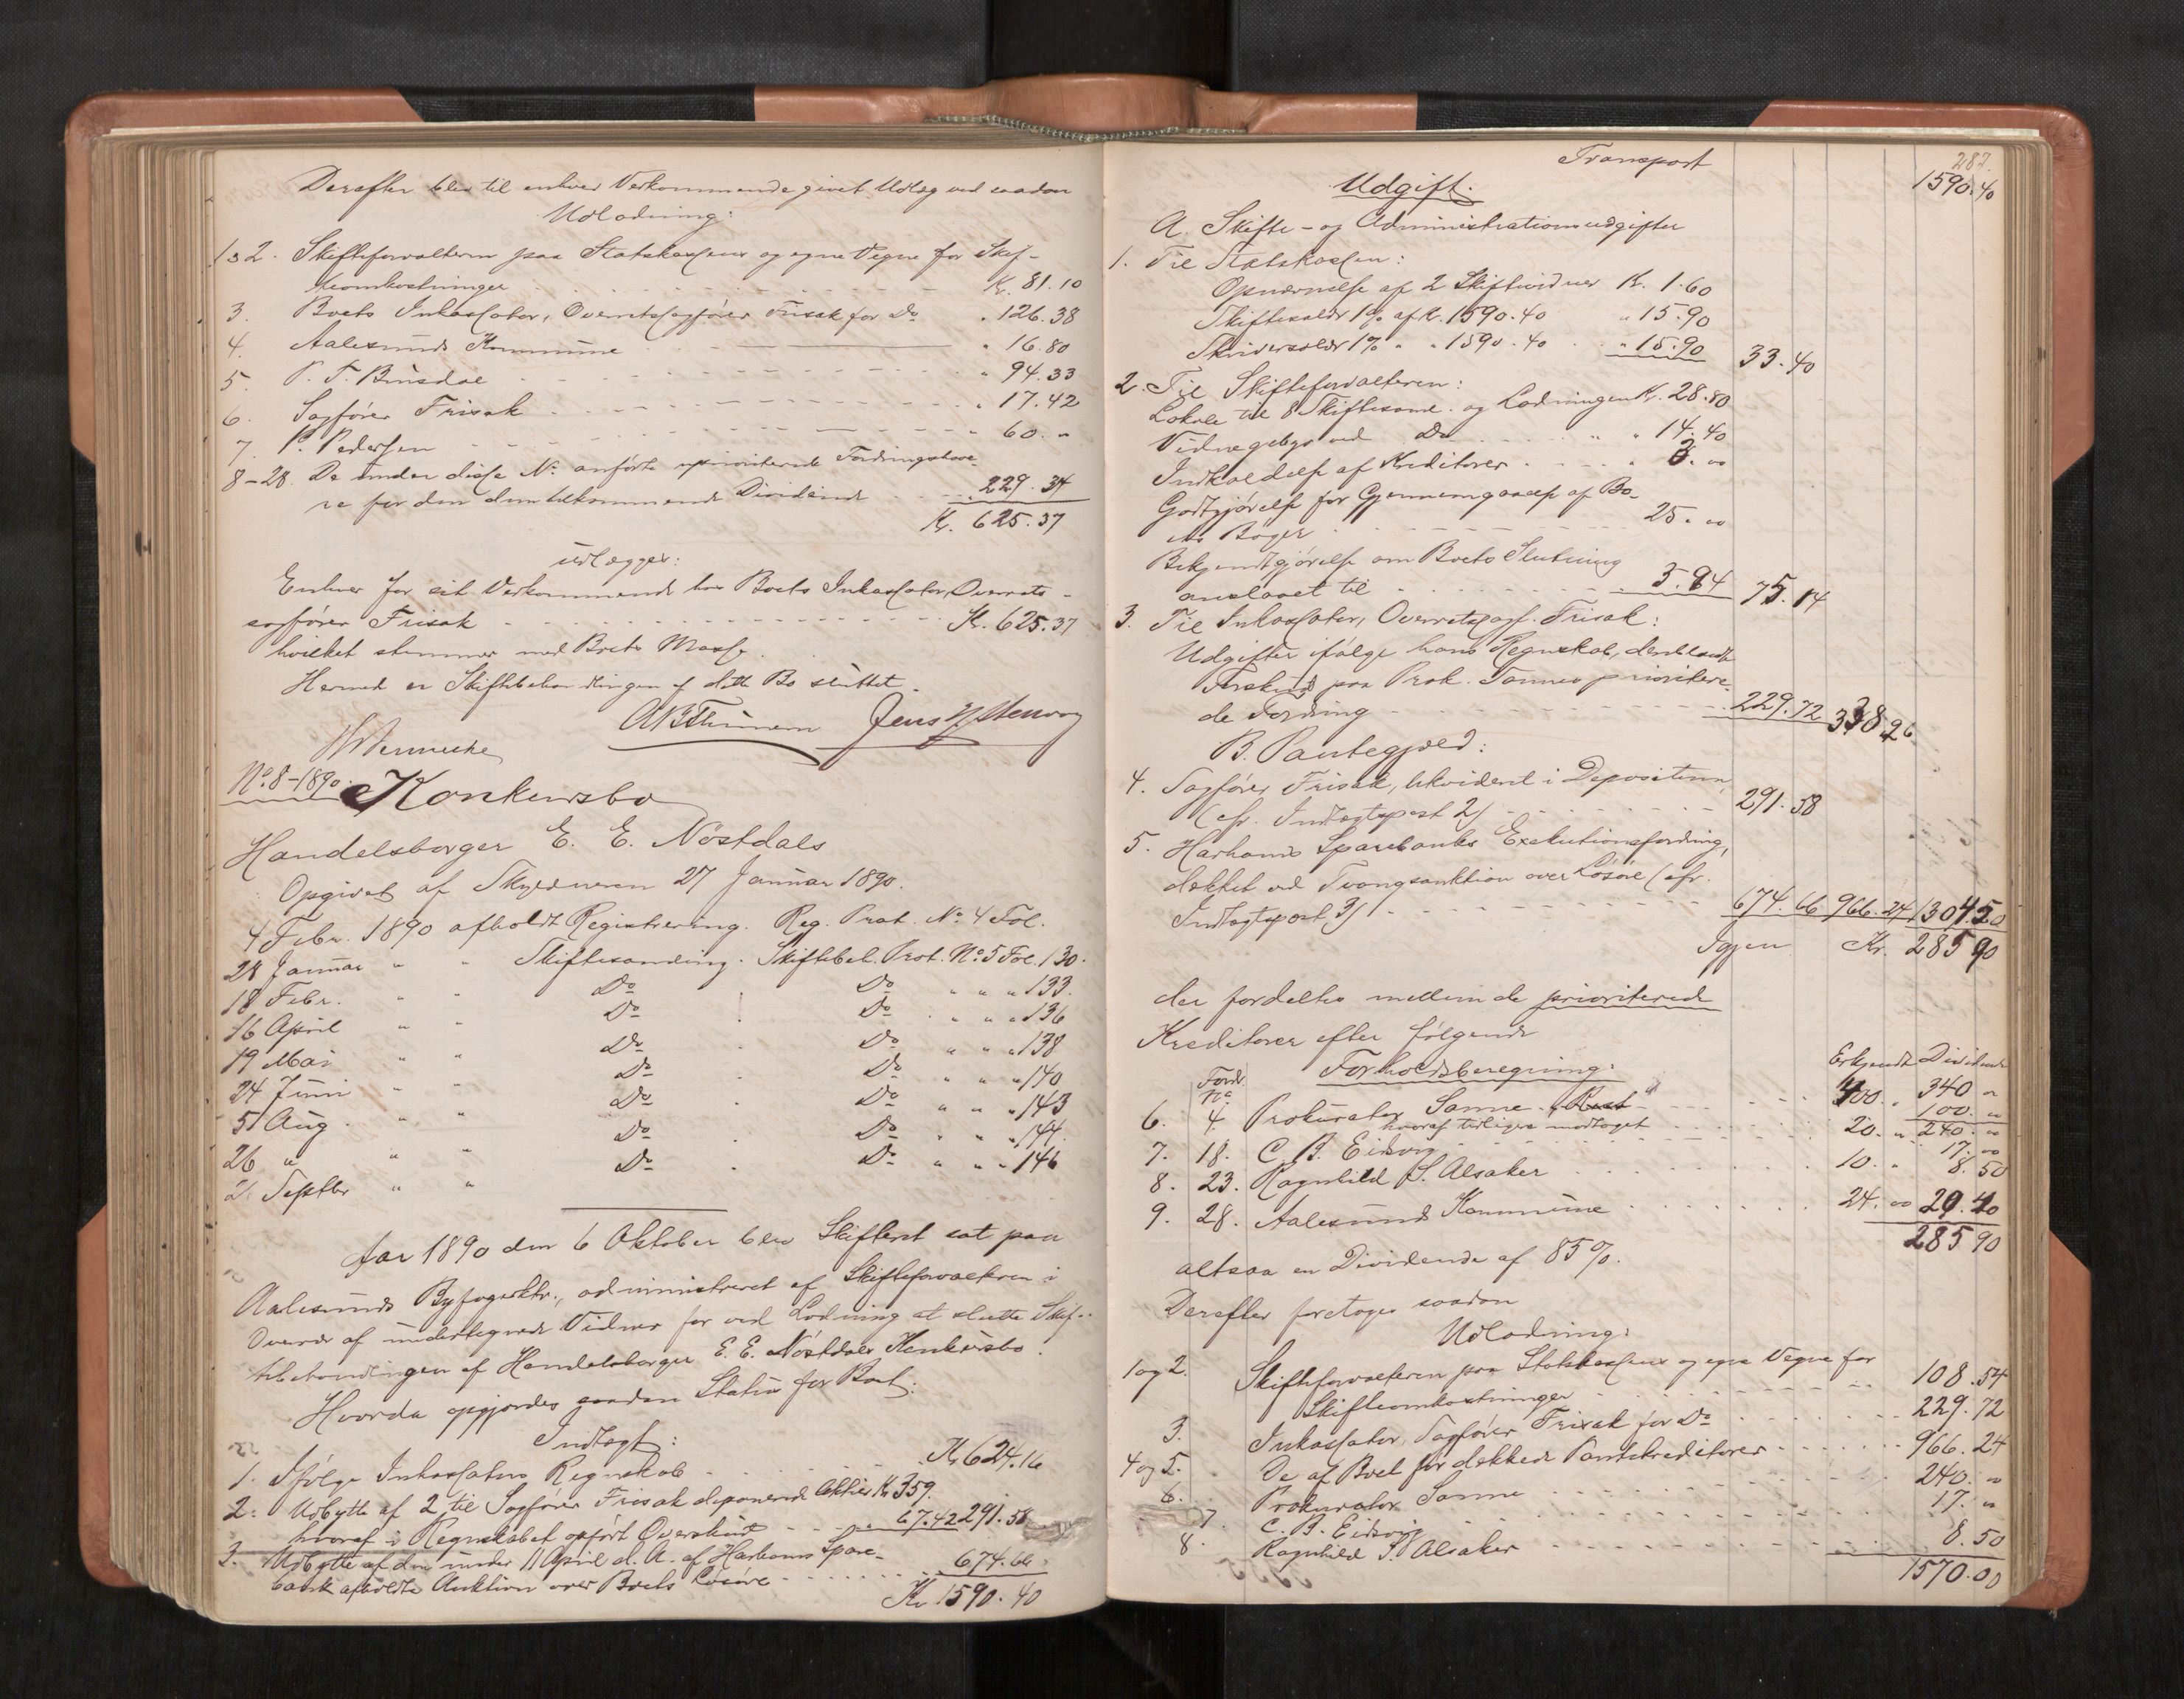 Derefter blev til enhver Vedkommende givet Udlæg ved saadan
Udlodning:
1 & 2. Skifteforvalteren paa Statskassens og egne Vegne for Skif-
teomkostninger Kr. 81.10
3. Boets Inkassator, Overretssagfører Frisak for Do " 126.38
4. Aalesunds Kommune " 16.80
5. P. T. Binsdal " 94.33
6. Sagfører Frisak " 17.42
7. P. Pedersen " 60. "
8-28. De under disse No. anførte uprioriterede Fordringshave-
re for den dem tilkommende Dividende 229.34
Kr. 625.37
udlægges:
Enhver for sit Vedkommende hos Boets Inkassator, Overrets-
sagfører Frisak Kr. 625.37
hvilket stemmer med Boets Masse.
Hermed er Skiftebehandlingen af dette Bo sluttet.
No. 8-1890. Konkursbo
Handelsborger E. E. Nöstdals
Opgivet af Skyldneren 27 Januar 1890.
4 Febr. 1890 afholdt Registrering. Reg. Prot. No. 4 Fol.
28 Januar " " Skiftesamling. Skiftebeh. Prot. No. 5 Fol. 130.
18 Febr. " " Do . Do " " " 133.
16 April " " Do . Do " " " 136
19 Mai " " Do . Do " " " 138
24 Juni " " Do . Do " " " 140
5 Aug. " " Do . Do " " " 143
26 " " " Do . Do " " " 144.
2. Septbr " " Do . Do " " " 146
Aar 1890 den 6 Oktober blev Skifteret sat paa
Aalesunds Byfogedktr., administreret af Skifteforvalteren i
Overvær af undertegnede Vidner for ved Lodning at slutte Skif-
tebehandlingen af Handelsborger E. E. Nöstdals Konkursbo.
Hvorda opgjordes saadan Status for Boet:
Indtægt:
1. Ifølge Inkassators Regnskab Kr 624.16
2. Udbytte af 2 til Sagfører Frisak deponerede Aktier Kr 359.
hvoraf i Regnskabet opført Overskud " 67.42 291.58
3. Udbytte af den under 11 April d. A. af Harhams Spare-
bank afholdte Auktion over Boets Løsøre 674.66
Kr 1590.40
282.
Transport 1590.40
Udgift:
A. Skifte- og Administrationsudgifter
1. Til Statskassen:
Opnævnelse af 2 Skiftevidner Kr. 1.60
Skiftesalær 1% af Kr. 1590.40 " 15.90
Skriversalær 1% " " 1590.40 " 15.90 33.40
2. Til Skifteforvalteren:
Lokale til 8 Skiftesaml. og Lodningen Kr. 28.80
Vidnegebyr ved Do " " 14.40
Indkaldelse af Kreditorer " 3. 00
Godtgjörelse for Gjennemgaaelse af Bo-
ets Bøger 25. 00
Bekjendtgjørelse om Boets Slutning
anslaaet til 3.94 75.14
3. Til Inkassator, Overretssagf. Frisak:
Udgifter ifølge hans Regnskab, deriblandt
Forskud paa Prok. Sannes prioritere-
de Fordring 229.72 338.26
B. Pantegjæld:
4. Sagfører Frisak, likvideret i Depositum,
(cfr. Indtægtspost 2) 291.58
5. Harhams Sparebanks Exekutionsfordring,
dækket ved Tvangsauktion over Løsøre (cfr.
Indtægtspost 3) 674.66 966.24 1304.50
Igjen Kr. 285 90
der fordeltes mellem de prioriterede
Kreditorer efter følgende
Forholdsberegning:
Ford. No. Erkjendt Dividende
6. 4. Prokurator Sanne 400. " 340 "
hvoraf tidligere modtaget 100. "
240. "
7. 18. C. B. Eidsvig 20. " 17. "
8. 23. Ragnhild S. Alsaker 10. " 8.50
9. 28. Aalesunds Kommune 24. 00 20.40
285 90
altsaa en Dividende af 85%.
Derefter foretoges saadan
Udlodning:
1 og 2. Skifteforvalteren paa Statskassens og egne Vegne for
Skifteomkostninger 108.54
3. Inkassator, Sagfører Frisak for Do 229.72
4 og 5. De af Boet før dækkede Pantekreditorer 966.24
6. Prokurator Sanne 240. "
7. C. B. Eidsvig 17. "
8. Ragnhild S. Alsaker 8.50
1570.00